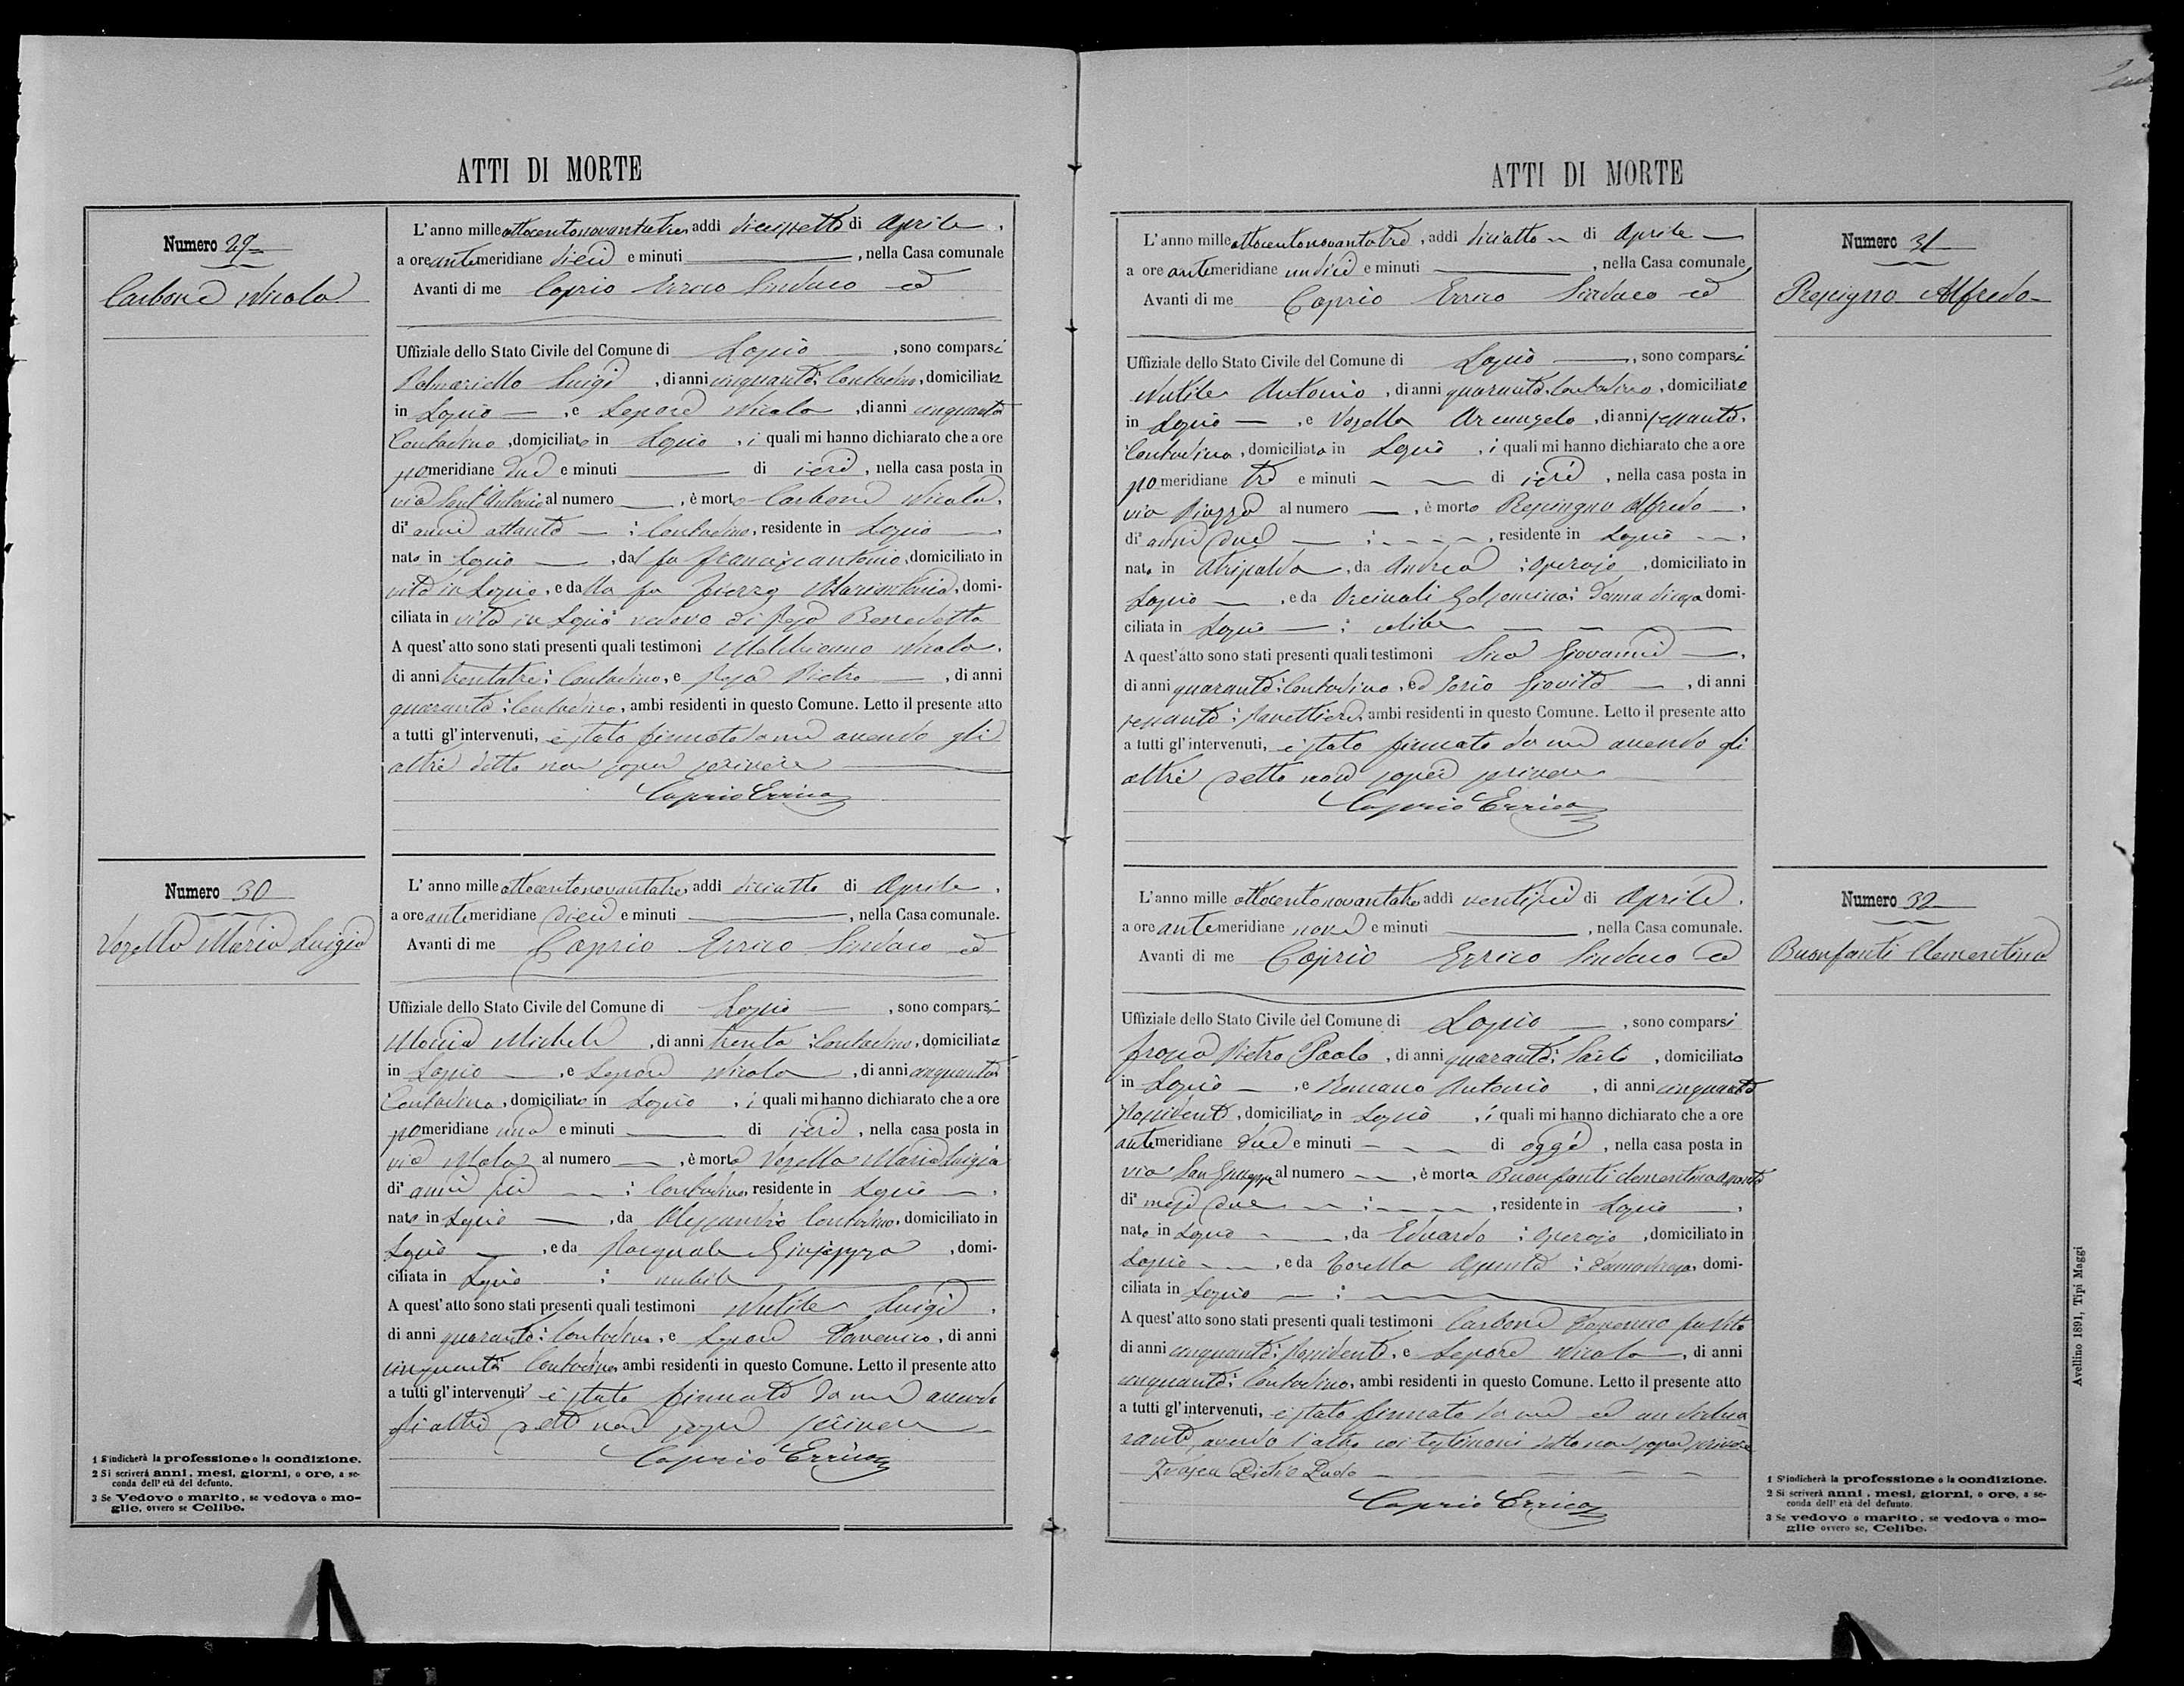 ATTI DI MORTE
Numero 29
Carbone Nicola
L'anno milleottocentonovantatre, addi diciassette di Aprile,
a ore antemeridiane dieci e minuti , nella Casa comunale
Avanti di me Caprio Errico Sindaco ed
Uffiziale dello Stato Civile del Comune di Lapio , sono comparsi
Palmariello Luigi , di anni cinquanta: Contadino, domiciliato
in Lapio , e Lepore Nicola , di anni cinquanta
Contadino , domiciliato in Lapio , i quali mi hanno dichiarato che a ore
pomeridiane due e minuti di ieri , nella casa posta in
via Sant'Antonio al numero , è morto Carbone Nicola,
di anni ottanta : Contadino, residente in Lapio ,
nato in Lapio , dal fu Francescantonio, domiciliato in
vita in Lapio, e dalla fu Mariantonia, domi-
ciliata in vita in Lapio vedovo di Benedetta
A quest'atto sono stati presenti quali testimoni Nicola,
di anni trentatre: Contadino, e Pietro , di anni
quaranta: Contadino, ambi residenti in questo Comune. Letto il presente atto
a tutti gl'intervenuti, è stato firmato da me avendo gli
altri detto non saper scrivere
Caprio Errico
Numero 30
Vozella Maria Luigia
L'anno milleottocentonovantatre, addi diciotto di Aprile,
a ore antemeridiane dieci e minuti , nella Casa comunale.
Avanti di me Caprio Errico Sindaco ed
Uffiziale dello Stato Civile del Comune di Lapio , sono comparsi
Michele , di anni trenta: Contadino, domiciliato
in Lapio , e Lepore Nicola , di anni cinquanta
Contadino , domiciliato in Lapio , i quali mi hanno dichiarato che a ore
pomeridiane una e minuti di ieri , nella casa posta in
via Mola al numero , è morta Vozella Maria Luigia
di anni sei : Contadina, residente in Lapio ,
nata in Lapio , da Alessandro Contadino, domiciliato in
Lapio , e da Pasquale Giuseppa , domi-
ciliata in Lapio : nubile
A quest'atto sono stati presenti quali testimoni Nutile Luigi ,
di anni quaranta: Contadino, e Lepore Domenico, di anni
cinquanta Contadino, ambi residenti in questo Comune. Letto il presente atto
a tutti gl'intervenuti è stato firmato da me avendo
gli altri detto non saper scrivere
Caprio Errico
1 S'indicherà la professione o la condizione.
2 Si scriverà anni, mesi, giorni, o ore, a se-
conda dell'età del defunto.
3 Se Vedovo o marito, se vedova o mo-
glie, ovvero se Celibe.
ATTI DI MORTE
Numero 31
Respigno Alfredo
L'anno milleottocentonovantatre, addi diciotto di Aprile
a ore antemeridiane undici e minuti , nella Casa comunale
Avanti di me Caprio Errico Sindaco ed
Uffiziale dello Stato Civile del Comune di Lapio , sono comparsi
Nutile Antonio , di anni quaranta, Contadino, domiciliato
in Lapio , e Vozella Arcangelo , di anni sessanta,
Contadino, domiciliato in Lapio , i quali mi hanno dichiarato che a ore
pomeridiane tre e minuti di ieri , nella casa posta in
via Piazza al numero , è morto Alfredo ,
di anni due : , residente in Lapio ,
nato in Atripalda , da Andrea : Operajo , domiciliato in
Lapio , e da Gelsomina: Donna di casa domi-
ciliata in Lapio : celibe
A quest'atto sono stati presenti quali testimoni Sica Giovanni ,
di anni quaranta: Contadino, ed Iorio , di anni
sessanta: Panettiere, ambi residenti in questo Comune. Letto il presente atto
a tutti gl'intervenuti, è stato firmato da me avendo gli
altri detto non saper scrivere
Caprio Errico
Numero 32
Buonfanti Clementina
L'anno mille ottocentonovantatre, addi ventisei di Aprile,
a ore antemeridiane nove e minuti , nella Casa comunale.
Avanti di me Caprio Errico Sindaco ed
Uffiziale dello Stato Civile del Comune di Lapio , sono comparsi
Pietro Paolo , di anni quaranta: Sarto , domiciliato
in Lapio , e Romano Antonio , di anni cinquanta
Possidente , domiciliato in Lapio , i quali mi hanno dichiarato che a ore
antemeridiane due e minuti di oggi , nella casa posta in
via San Giuseppe al numero , è morta Buonfanti Clementina
di mesi due : , residente in Lapio ,
nata in Lapio , da Eduardo : Operajo , domiciliato in
Lapio , e da Assunta : Donna di casa, domi-
ciliata in Lapio :
A quest'atto sono stati presenti quali testimoni Carbone Domenico fu Vito
di anni cinquanta: Possidente, e Lepore Nicola , di anni
cinquanta: Contadino, ambi residenti in questo Comune. Letto il presente atto
a tutti gl'intervenuti, è stato firmato da me ed un dichia-
rante, avendo l'altro coi testimoni detto non saper scrivere
Pietro Paolo
Caprio Errico
1 S'indicherà la professione o la condizione.
2 Si scriverà anni, mesi, giorni, o ore, a se-
conda dell'età del defunto.
3 Se vedovo o marito, se vedova o mo-
glie ovvero se, Celibe.
Avellino 1891, Tipi Maggi